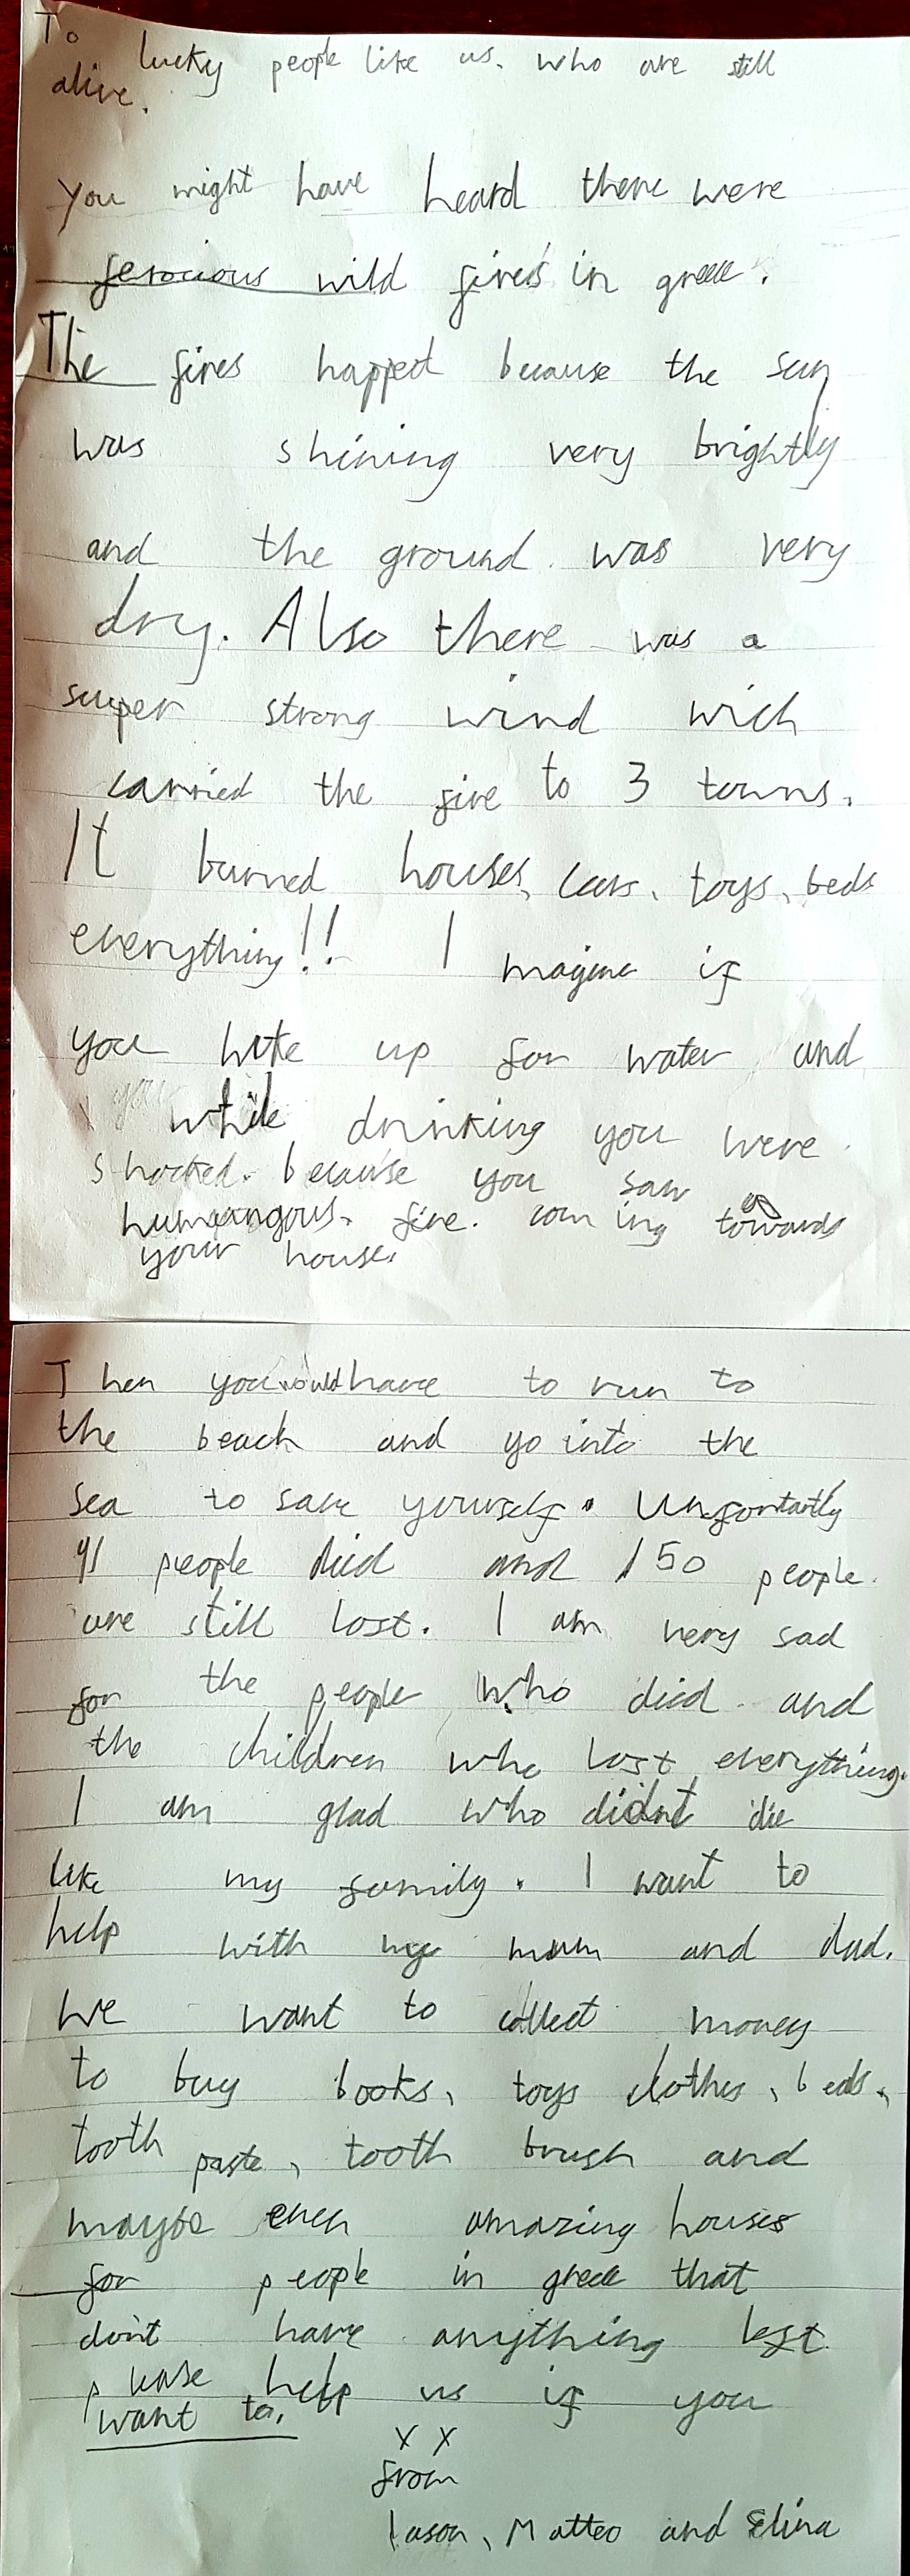 To
lucky people like us. who are still
alive.
you might have heard there were
ferocious wild fires in greece.
The fires happed because the sun
was shining very brightly
and the ground was very
dry. Also there was a
super strong wind wich
carried the fire to 3 towns.
It burned houses, cars, toys, beds
everything!! Imagine if
you woke up for water and
while drinking you were
shocked. because you saw a
humangous. fire. coming towards
your house.
Then you would have to run to
the beach and go into the
sea to save yourself. Unfortantly
91 people died and 150 people
are still lost. I am very sad
for the people who died and
the children who lost everything.
I am glad who didnt die
like my family. I want to
help with my mum and dad.
We want to collect money
to buy books, toys clothes, beds,
tooth paste, tooth brush and
maybe even amazing houses
for people in greece that
dont have anything left
please help us if you
want to.
x x
from
Iason, Matteo and Elina